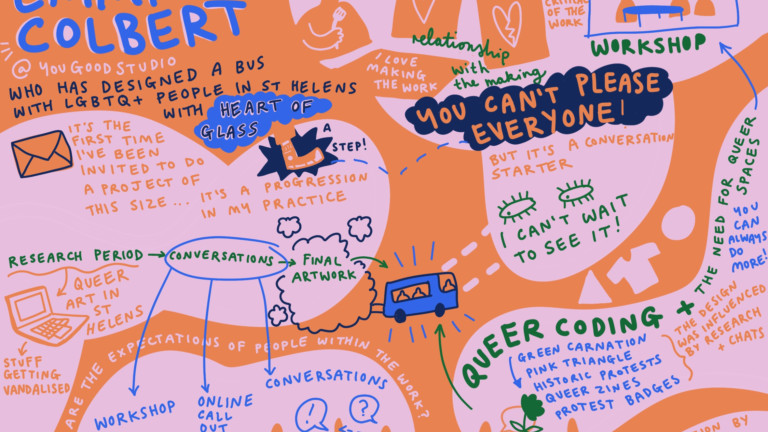 COLBERT
@ YOUGOODSTUDIO
WHO HAS DESIGNED A BUS
WITH LGBTQ+ PEOPLE IN ST HELENS
WITH HEART OF
GLASS
IT'S THE
FIRST TIME
I'VE BEEN
INVITED TO DO
A PROJECT OF
THIS SIZE... IT'S A PROGRESSION
IN MY PRACTICE
A
STEP!
I LOVE
MAKING
THE WORK
relationship
with
the making
CRITICAL
OF THE
WORK
WORKSHOP
YOU CAN'T PLEASE
EVERYONE!
BUT IT'S A CONVERSATION
STARTER
I CAN'T WAIT
TO SEE IT!
RESEARCH PERIOD
CONVERSATIONS
FINAL
ARTWORK
QUEER
ART IN
ST
HELENS
STUFF
GETTING
VANDALISED
ARE THE EXPECTATIONS OF PEOPLE WITHIN THE WORK?
WORKSHOP
ONLINE
CALL
OUT
CONVERSATIONS
!
?
QUEER CODING + THE NEED FOR QUEER
SPACES
YOU
CAN
ALWAYS
DO
MORE!
GREEN CARNATION
PINK TRIANGLE
HISTORIC PROTESTS
QUEER ZINES
PROTEST BADGES
THE DESIGN
WAS INFLUENCED
BY RESEARCH
+ CHATS
BY